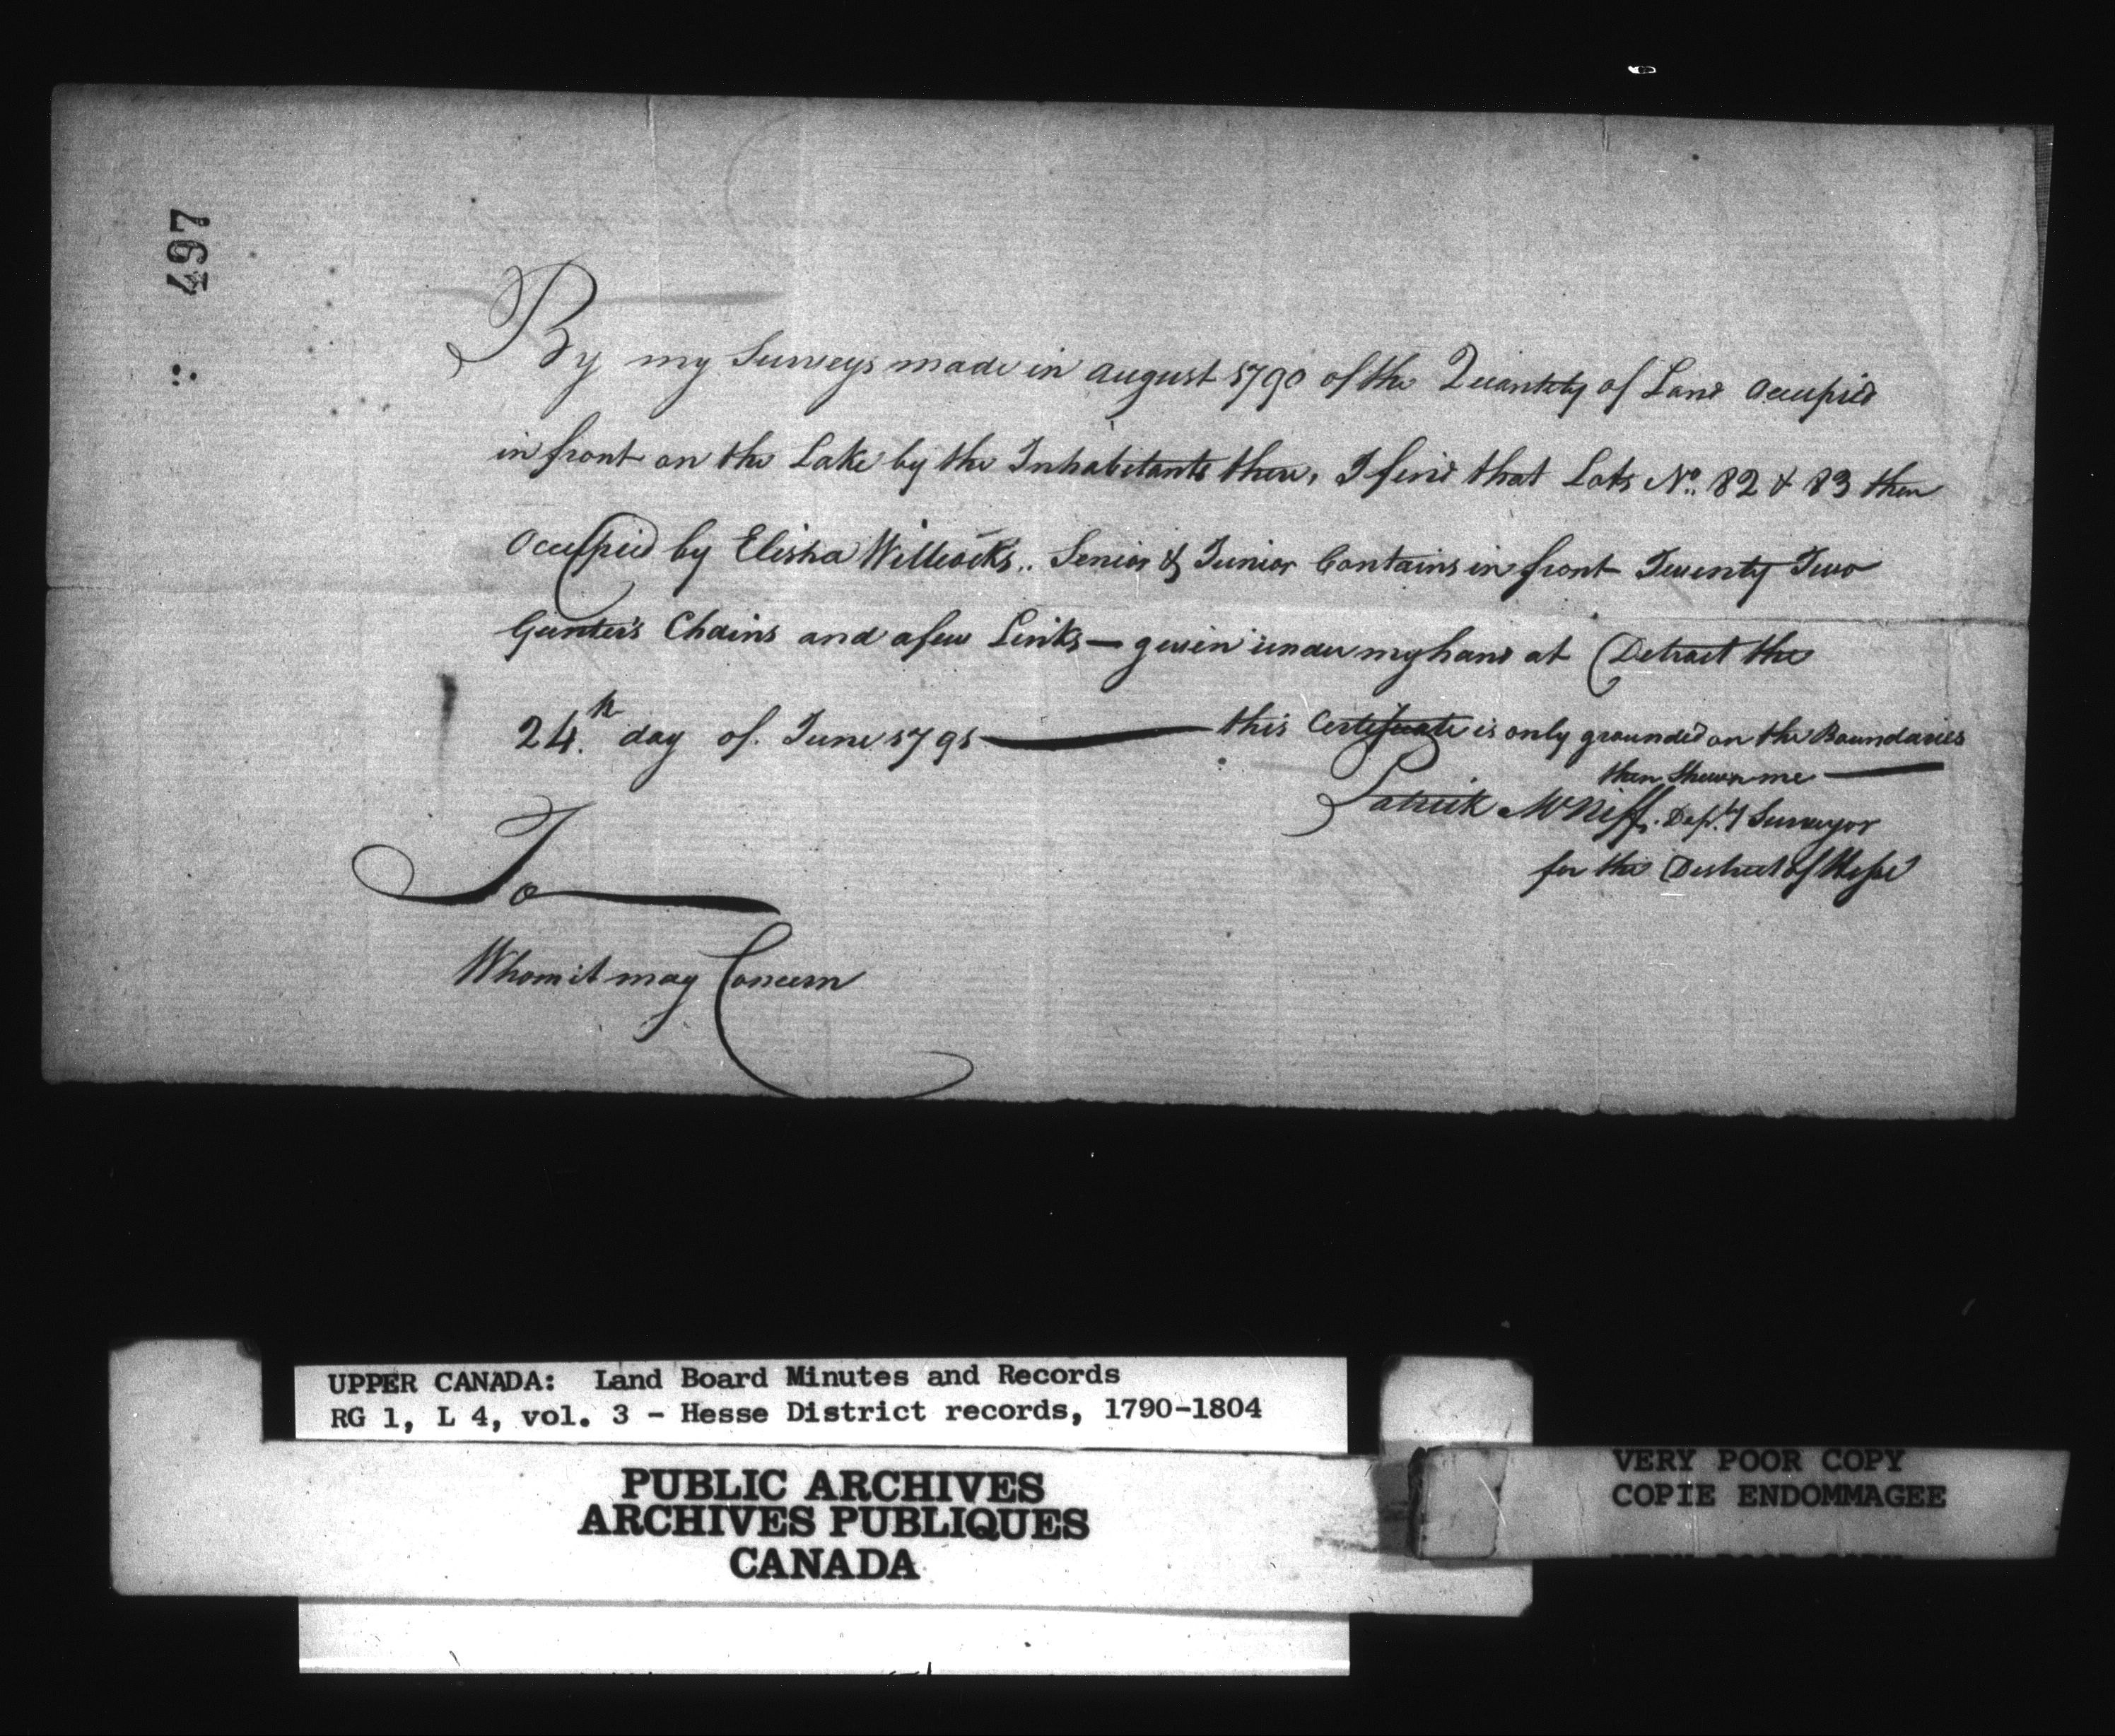 497
By my Surveys made in august 1790 of the Quantity of Land Occupied
in front on the Lake by the Inhabitants there, I find that Lots No. 82 & 83 then
Occupied by Elisha Willcocks.. Senior & Junior Contains in front Twenty Two
Gunter's Chains and a few Links — given under my hand at Detroit the
24th day of June 1791 — this Certificate is only grounded on the Boundaries
then Shewn me —
Patrick McNiff. Depy Surveyor
for the District of Hesse
To
Whom it may Concern
UPPER CANADA: Land Board Minutes and Records
RG 1, L 4, vol. 3 - Hesse District records, 1790-1804
PUBLIC ARCHIVES
ARCHIVES PUBLIQUES
CANADA
VERY POOR COPY
COPIE ENDOMMAGEE
VERY POOR COPY